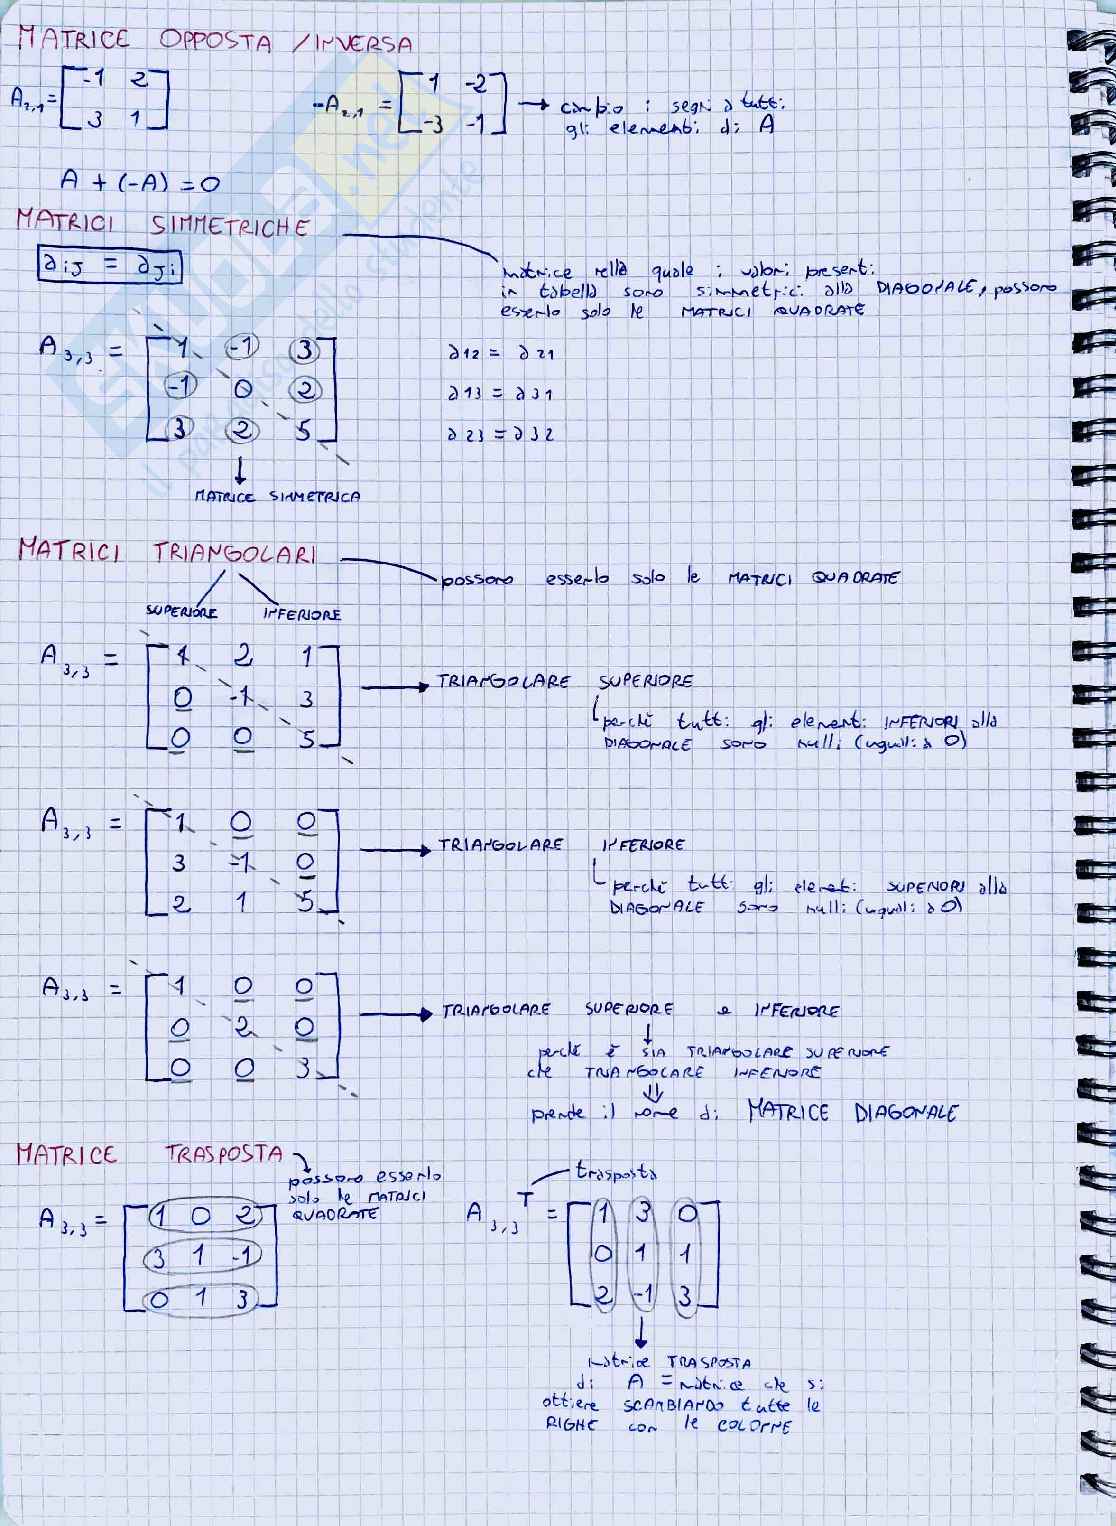 MATRICE OPPOSTA / INVERSA
A2,1 = [-1 2
3 1]
-A2,1 = [1 -2
-3 -1] → cambio i segni a tutti
gli elementi di A
A + (-A) = 0
MATRICI SIMMETRICHE
aij = aji
matrice nella quale i valori presenti
in tabella sono simmetrici alla DIAGONALE, possono
esserlo solo le MATRICI QUADRATE
A3,3 = [1 -1 3
-1 0 2
3 2 5]
a12 = a21
a13 = a31
a23 = a32
↓
MATRICE SIMMETRICA
MATRICI TRIANGOLARI
possono esserlo solo le MATRICI QUADRATE
SUPERIORE INFERIORE
A3,3 = [1 2 1
0 -1 3
0 0 5]
→ TRIANGOLARE SUPERIORE
perché tutti gli elementi INFERIORI alla
DIAGONALE sono nulli (uguali a 0)
A3,3 = [1 0 0
3 -1 0
2 1 5]
→ TRIANGOLARE INFERIORE
perché tutti gli elemeti SUPERIORI alla
DIAGONALE sono nulli (uguali a 0)
A3,3 = [1 0 0
0 2 0
0 0 3]
→ TRIANGOLARE SUPERIORE e INFERIORE
↓
perché è SIA TRIANGOLARE SUPERIORE
che TRIANGOLARE INFERIORE
⇓
prende il nome di MATRICE DIAGONALE
MATRICE TRASPOSTA
possono esserlo
solo le MATRICI
QUADRATE
A3,3 = [1 0 2
3 1 -1
0 1 3]
trasposta
A3,3 T = [1 3 0
0 1 1
2 -1 3]
↓
Matrice TRASPOSTA
di A = Matrice che si
ottiene SCAMBIANDO tutte le
RIGHE con le COLONNE
SKUOLA.net
il paradiso dello studente